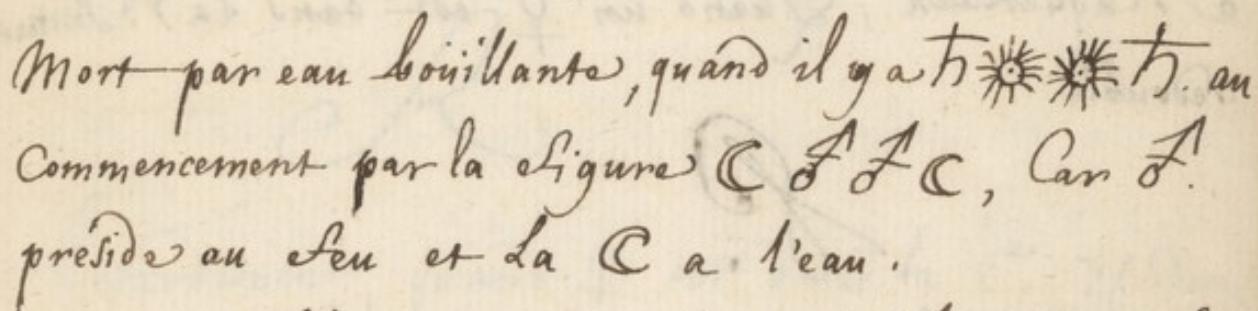 Mort par eau boüillante, quand il y a ♄ ☉ ☉ ♄. au
Commencement par la figure ☾ ♂ ♂ ☾, Car ♂.
préside au feu et La ☾ a l'eau.